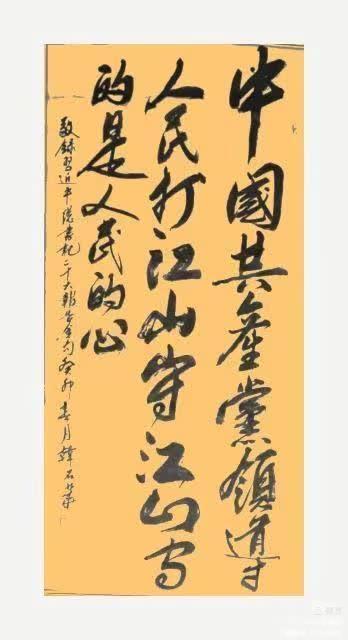 中國共產黨領導
人民打江山守江山守
的是人民的心
敬錄習近平總書記二十大報告金句癸卯春月韓石